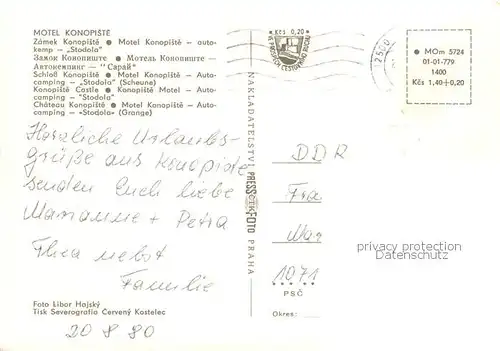 MOTEL KONOPIŠTĚ
Zámek Konopiště ● Motel Konopiště - auto-
kemp - "Stodola"
Замок Конопиште ● Мотель Конопиште -
Автокемпинг - "Сарай"
Schloß Konopiště ● Motel Konopiště - Auto-
camping - „Stodola" (Scheune)
Konopiště Castle ● Motel Konopiště - Auto-
camping - "Stodola"
Château Konopiště ● Motel Konopiště - Auto-
camping - «Stodola» (Grange)
Herzliche Urlaubs-
grüße aus Konopiste
senden Euch liebe
Marianne + Petra
Thea nebst
Familie
Foto Libor Hajský
Tisk Severografia Červený Kostelec
20 8 80
NAKLADATELSTVÍ PRESSFOTO PRAHA
Kčs 0,20
2500
● MOm 5724
01-01-779
1400
Kčs 1,40+0,20
DDR
Fra
1071
PSČ
Okres:
privacy protection
©ansichtskarten-center.de